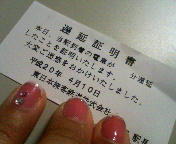 遅延証明書
本日、当駅到着の電車が 分遅延
したことを証明いたします。
大変ご迷惑をおかけいたしました。
平成20年 4月10日
東日本旅客鉄道株式会社
駅長